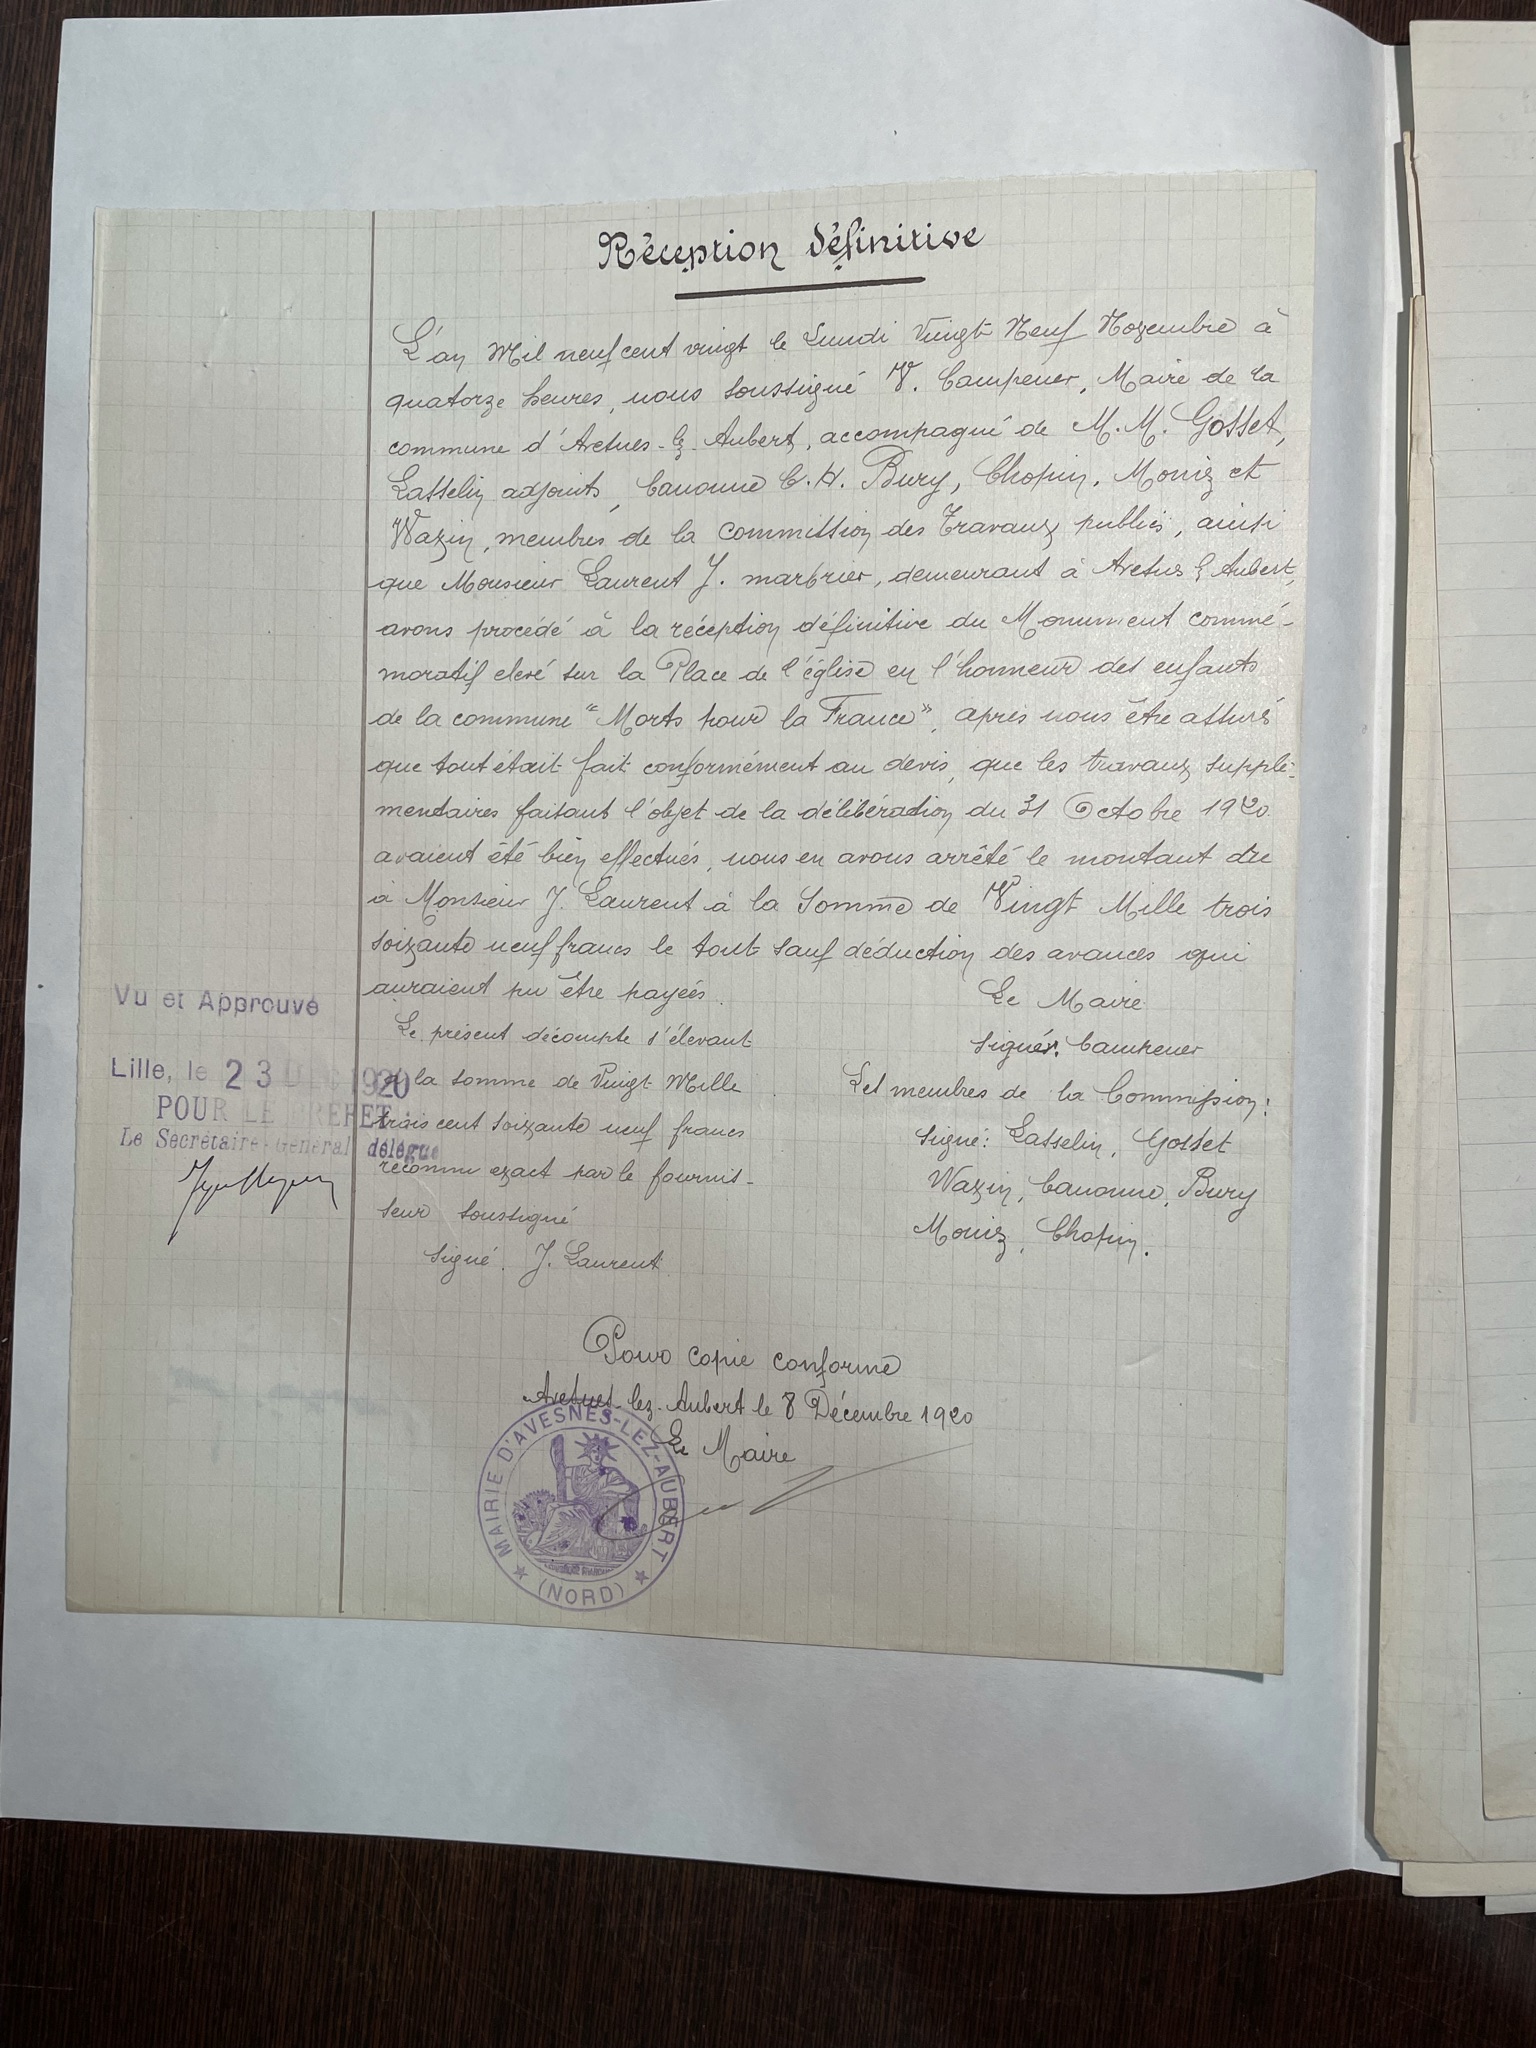 Réception définitive
L'an Mil neuf cent vingt le Lundi Vingt Neuf Novembre à
quatorze heures, nous soussigné V. Campener, Maire de la
commune d'Avesnes-lz-Aubert, accompagné de M.M. Gosset,
Lasselin adjoints, Canonne C.H. Bury, Chopin, Moniz et
Wazin, membres de la commission des Travaux publics, ainsi
que Monsieur Laurent J. marbrier, demeurant à Avesnes lz Aubert,
avons procédé à la réception définitive du Monument commé-
moratif elevé sur la Place de l'église en l'honneur des enfants
de la commune "Morts pour la France", après nous être assuré
que tout était fait conformément au devis, que les travaux supplé-
mentaires faisant l'objet de la délibération du 31 Octobre 1920
avaient été bien effectués, nous en avons arrêté le montant du
à Monsieur J. Laurent à la Somme de Vingt Mille trois
soixante neuf francs le tout sauf déduction des avances qui
auraient pu être payées.
Le Maire
signé: Campener
Les membres de la Commission:
signé: Lasselin, Gosset
Wazin, Canonne, Bury
Moniz, Chopin.
Le présent décompte s'élevant
à la somme de Vingt Mille
trois cent soixante neuf francs
reconnu exact par le fournis-
seur soussigné
signé. J. Laurent
Vu et Approuvé
Lille, le 23 DEC 1920
POUR LE PREFET:
Le Secrétaire Général délégué
Pour copie conforme
Avesnes-lez-Aubert le 8 Décembre 1920
Le Maire
MAIRIE D'AVESNES-LEZ-AUBERT
(NORD)